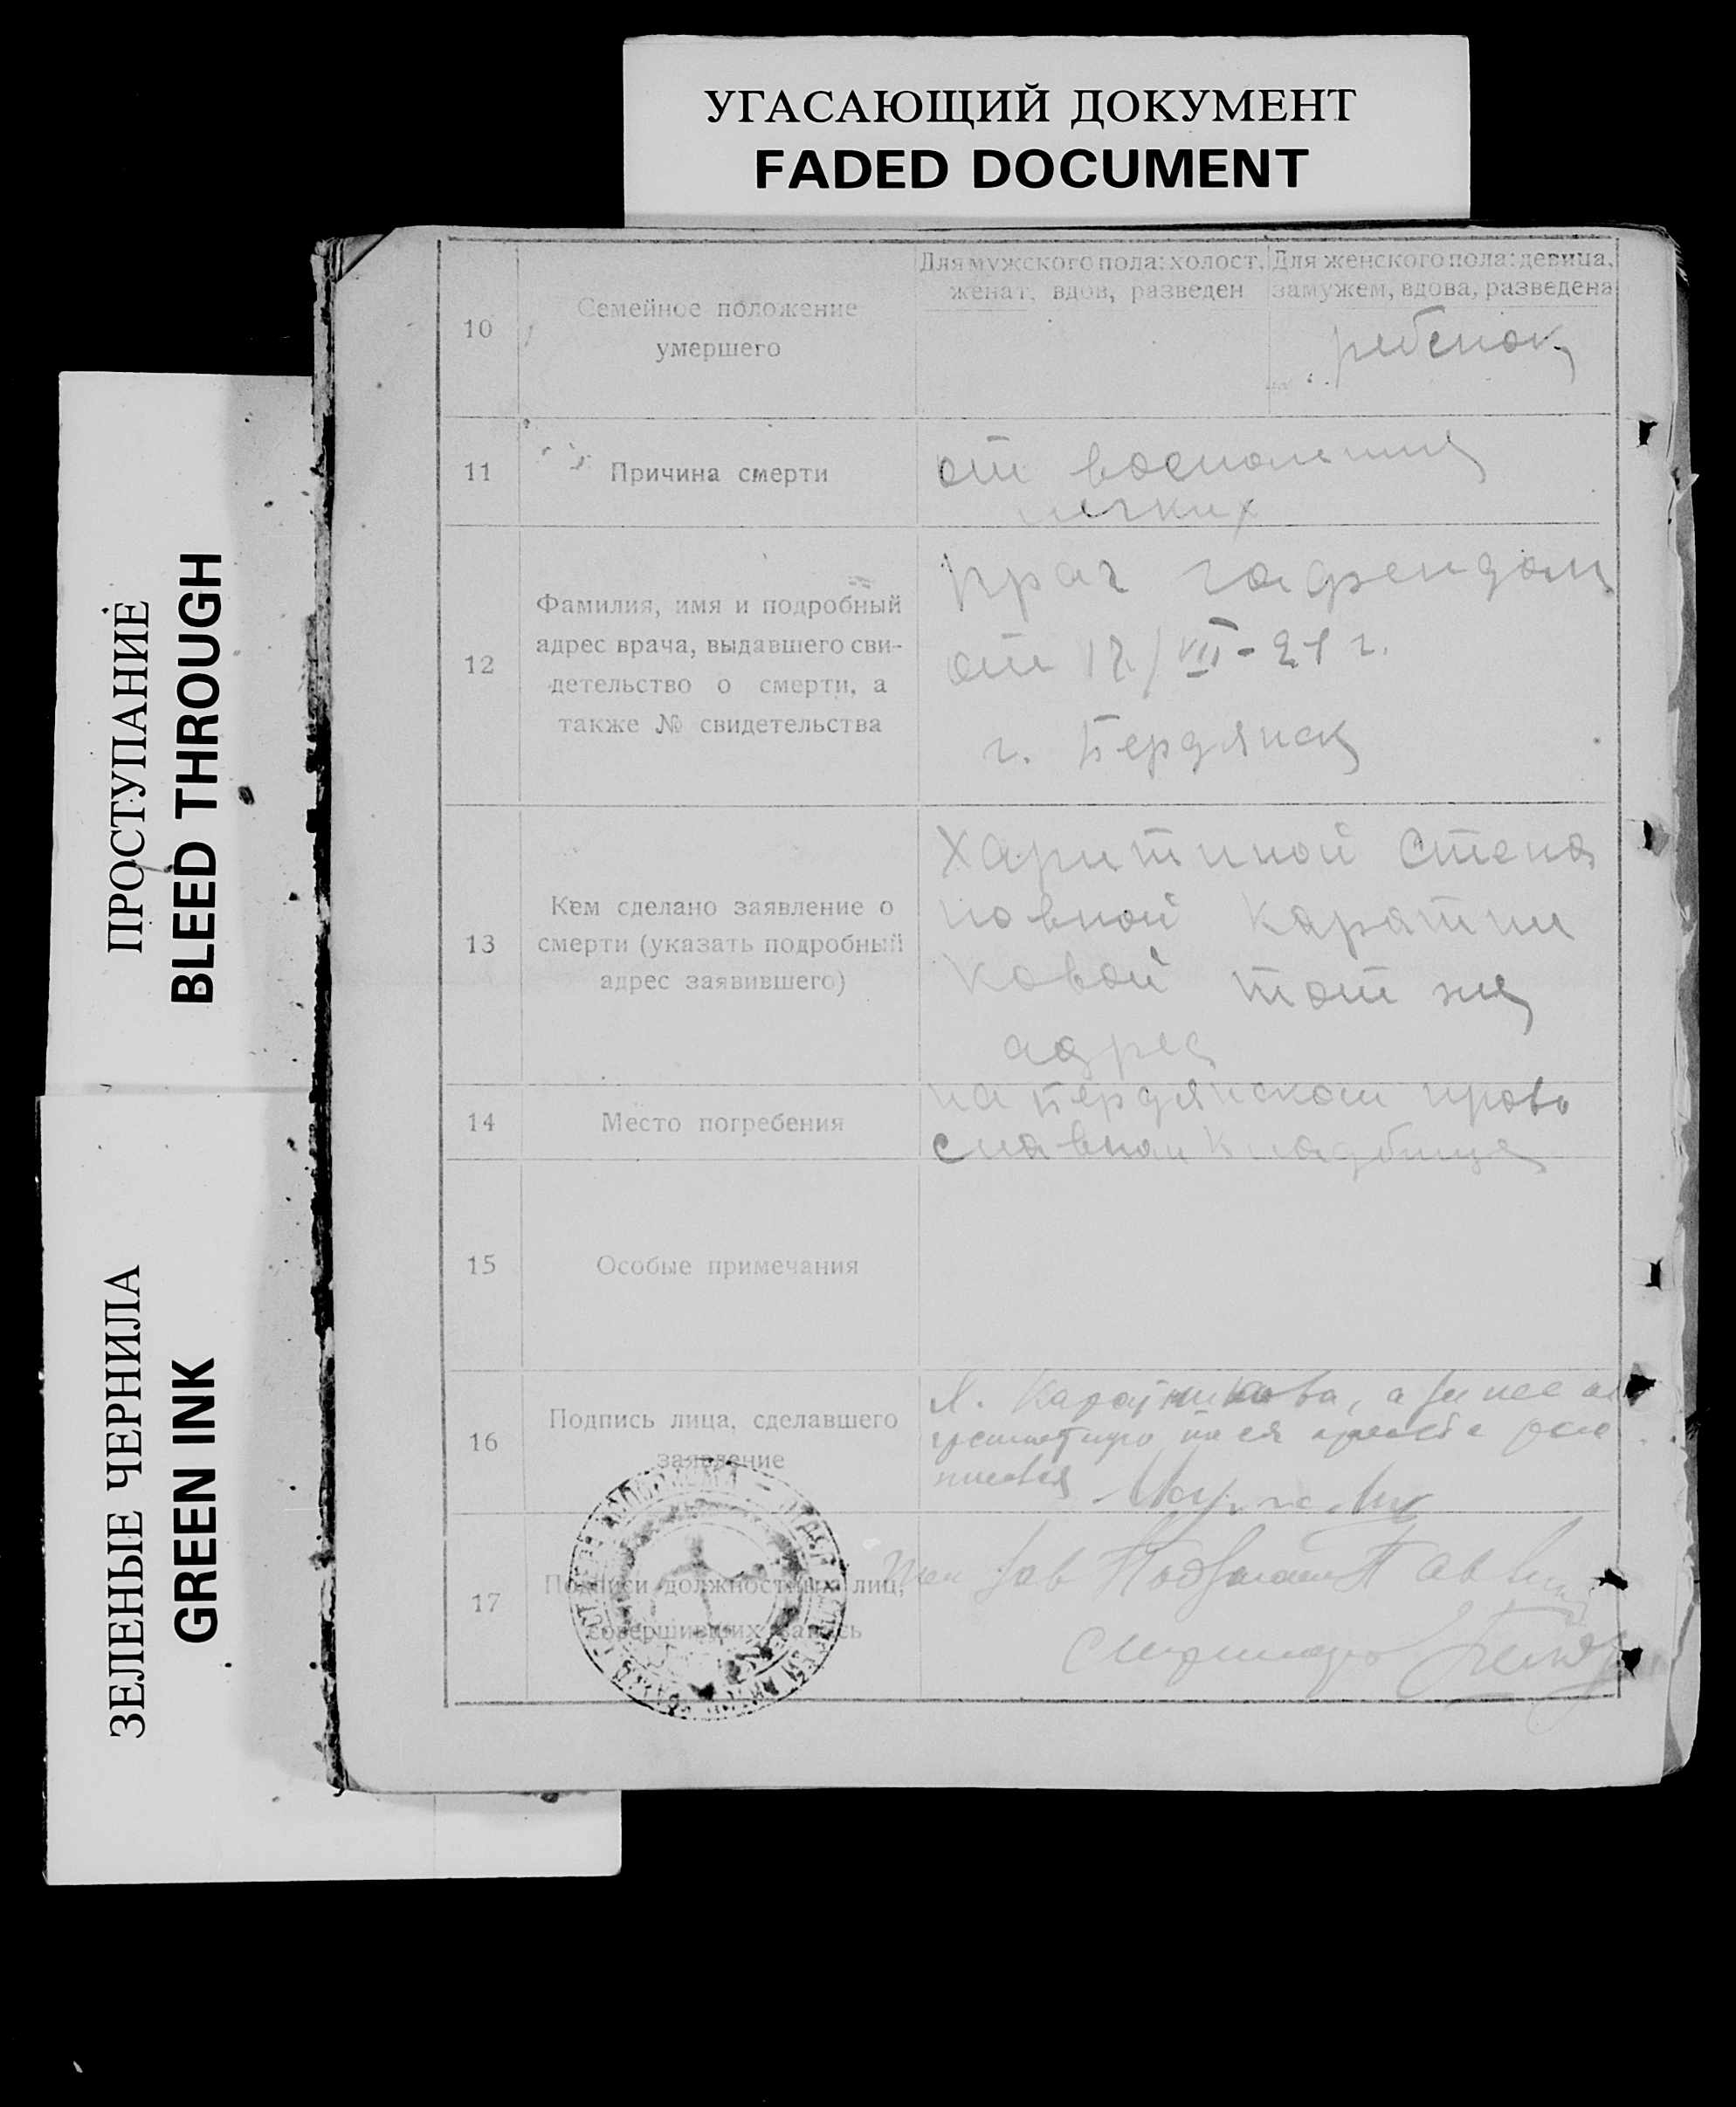 УГАСАЮЩИЙ ДОКУМЕНТ
FADED DOCUMENT
ПРОСТУПАНИЕ
BLEED THROUGH
ЗЕЛЕНЫЕ ЧЕРНИЛА
GREEN INK
10
Семейное положение
умершего
Для мужского пола: холост,
женат, вдов, разведен
Для женского пола: девица,
замужем, вдова, разведена
ребенок
11
Причина смерти
от воспаления
легких
12
Фамилия, имя и подробный
адрес врача, выдавшего сви-
детельство о смерти, а
также № свидетельства
врач
от 12/VII-21 г.
г. Бердянск
13
Кем сделано заявление о
смерти (указать подробный
адрес заявившего)
Харитиной Степа
новной Каратни
ковой тот же
адрес
14
Место погребения
на Бердянском право
славном кладбище
15
Особые примечания
16
Подпись лица, сделавшего
заявление
Х. Каратникова, а за нее
по ея
17
Подписи должностных лиц,
совершивших запись
Зав